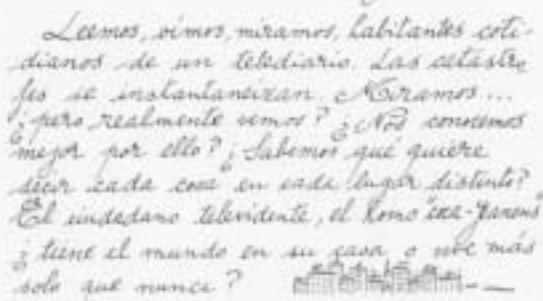 Leemos, oímos, miramos, habitantes coti-
dianos de un telediario. Las catástro
fes se instantaneizan. Miramos...
¿pero realmente vemos? ¿Nos conocemos
mejor por ello? ¿Sabemos qué quiere
decir cada cosa en cada lugar distinto?
El ciudadano televidente, el homo
¿tiene el mundo en su casa o vive más
solo que nunca?